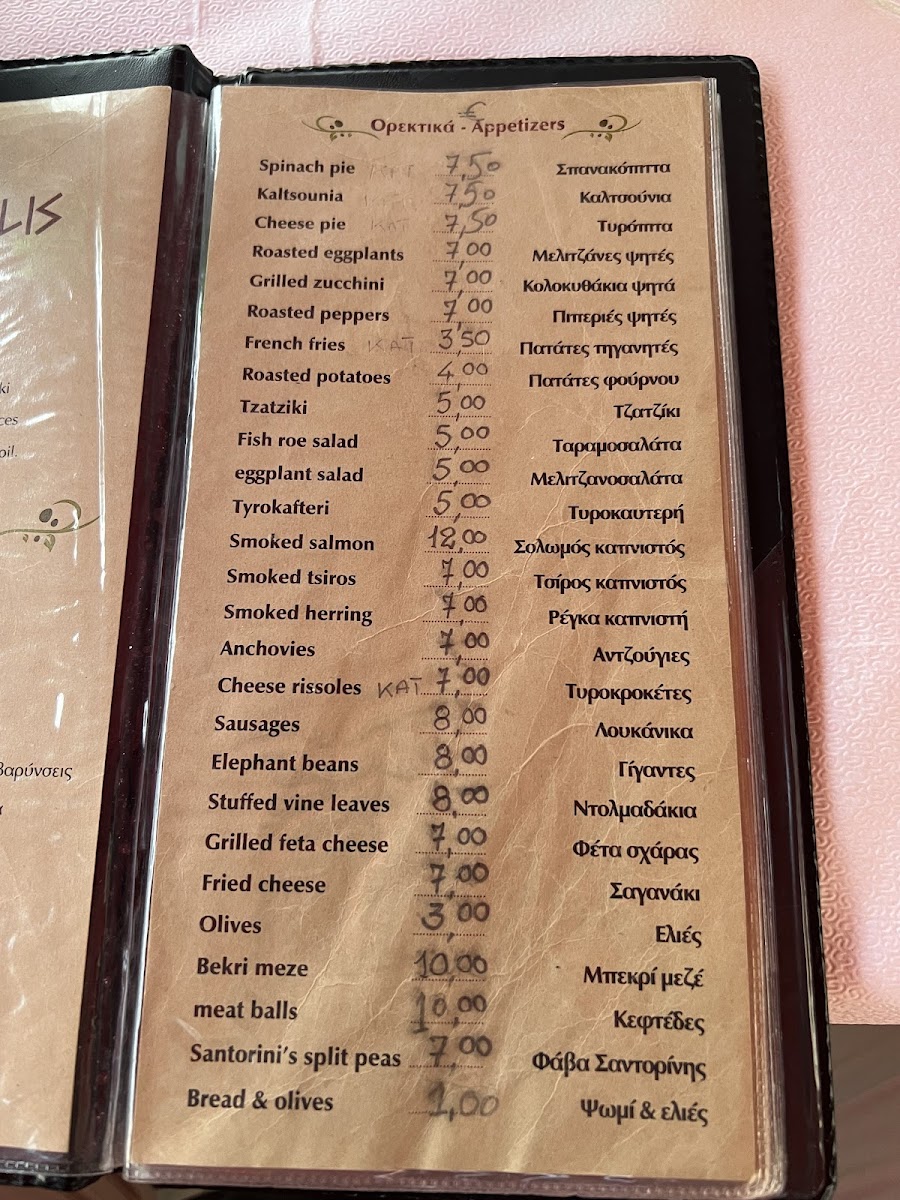 LIS
ki
ces
oil.
βαρύνσεις
α
€
Ορεκτικά - Appetizers
Spinach pie ΚΑΤ 7,50 Σπανακόπιττα
Kaltsounia 7,50 Καλτσούνια
Cheese pie ΚΑΤ 7,50 Τυρόπιτα
Roasted eggplants 7,00 Μελιτζάνες ψητές
Grilled zucchini 7,00 Κολοκυθάκια ψητά
Roasted peppers 7,00 Πιπεριές ψητές
French fries ΚΑΤ 3,50 Πατάτες τηγανητές
Roasted potatoes 4,00 Πατάτες φούρνου
Tzatziki 5,00 Τζατζίκι
Fish roe salad 5,00 Ταραμοσαλάτα
eggplant salad 5,00 Μελιτζανοσαλάτα
Tyrokafteri 5,00 Τυροκαυτερή
Smoked salmon 12,00 Σολωμός καπνιστός
Smoked tsiros 7,00 Τσίρος καπνιστός
Smoked herring 7,00 Ρέγκα καπνιστή
Anchovies 7,00 Αντζούγιες
Cheese rissoles ΚΑΤ 7,00 Τυροκροκέτες
Sausages 8,00 Λουκάνικα
Elephant beans 8,00 Γίγαντες
Stuffed vine leaves 8,00 Ντολμαδάκια
Grilled feta cheese 7,00 Φέτα σχάρας
Fried cheese 7,00 Σαγανάκι
Olives 3,00 Ελιές
Bekri meze 10,00 Μπεκρί μεζέ
meat balls 10,00 Κεφτέδες
Santorini's split peas 7,00 Φάβα Σαντορίνης
Bread & olives 1,00 Ψωμί & ελιές